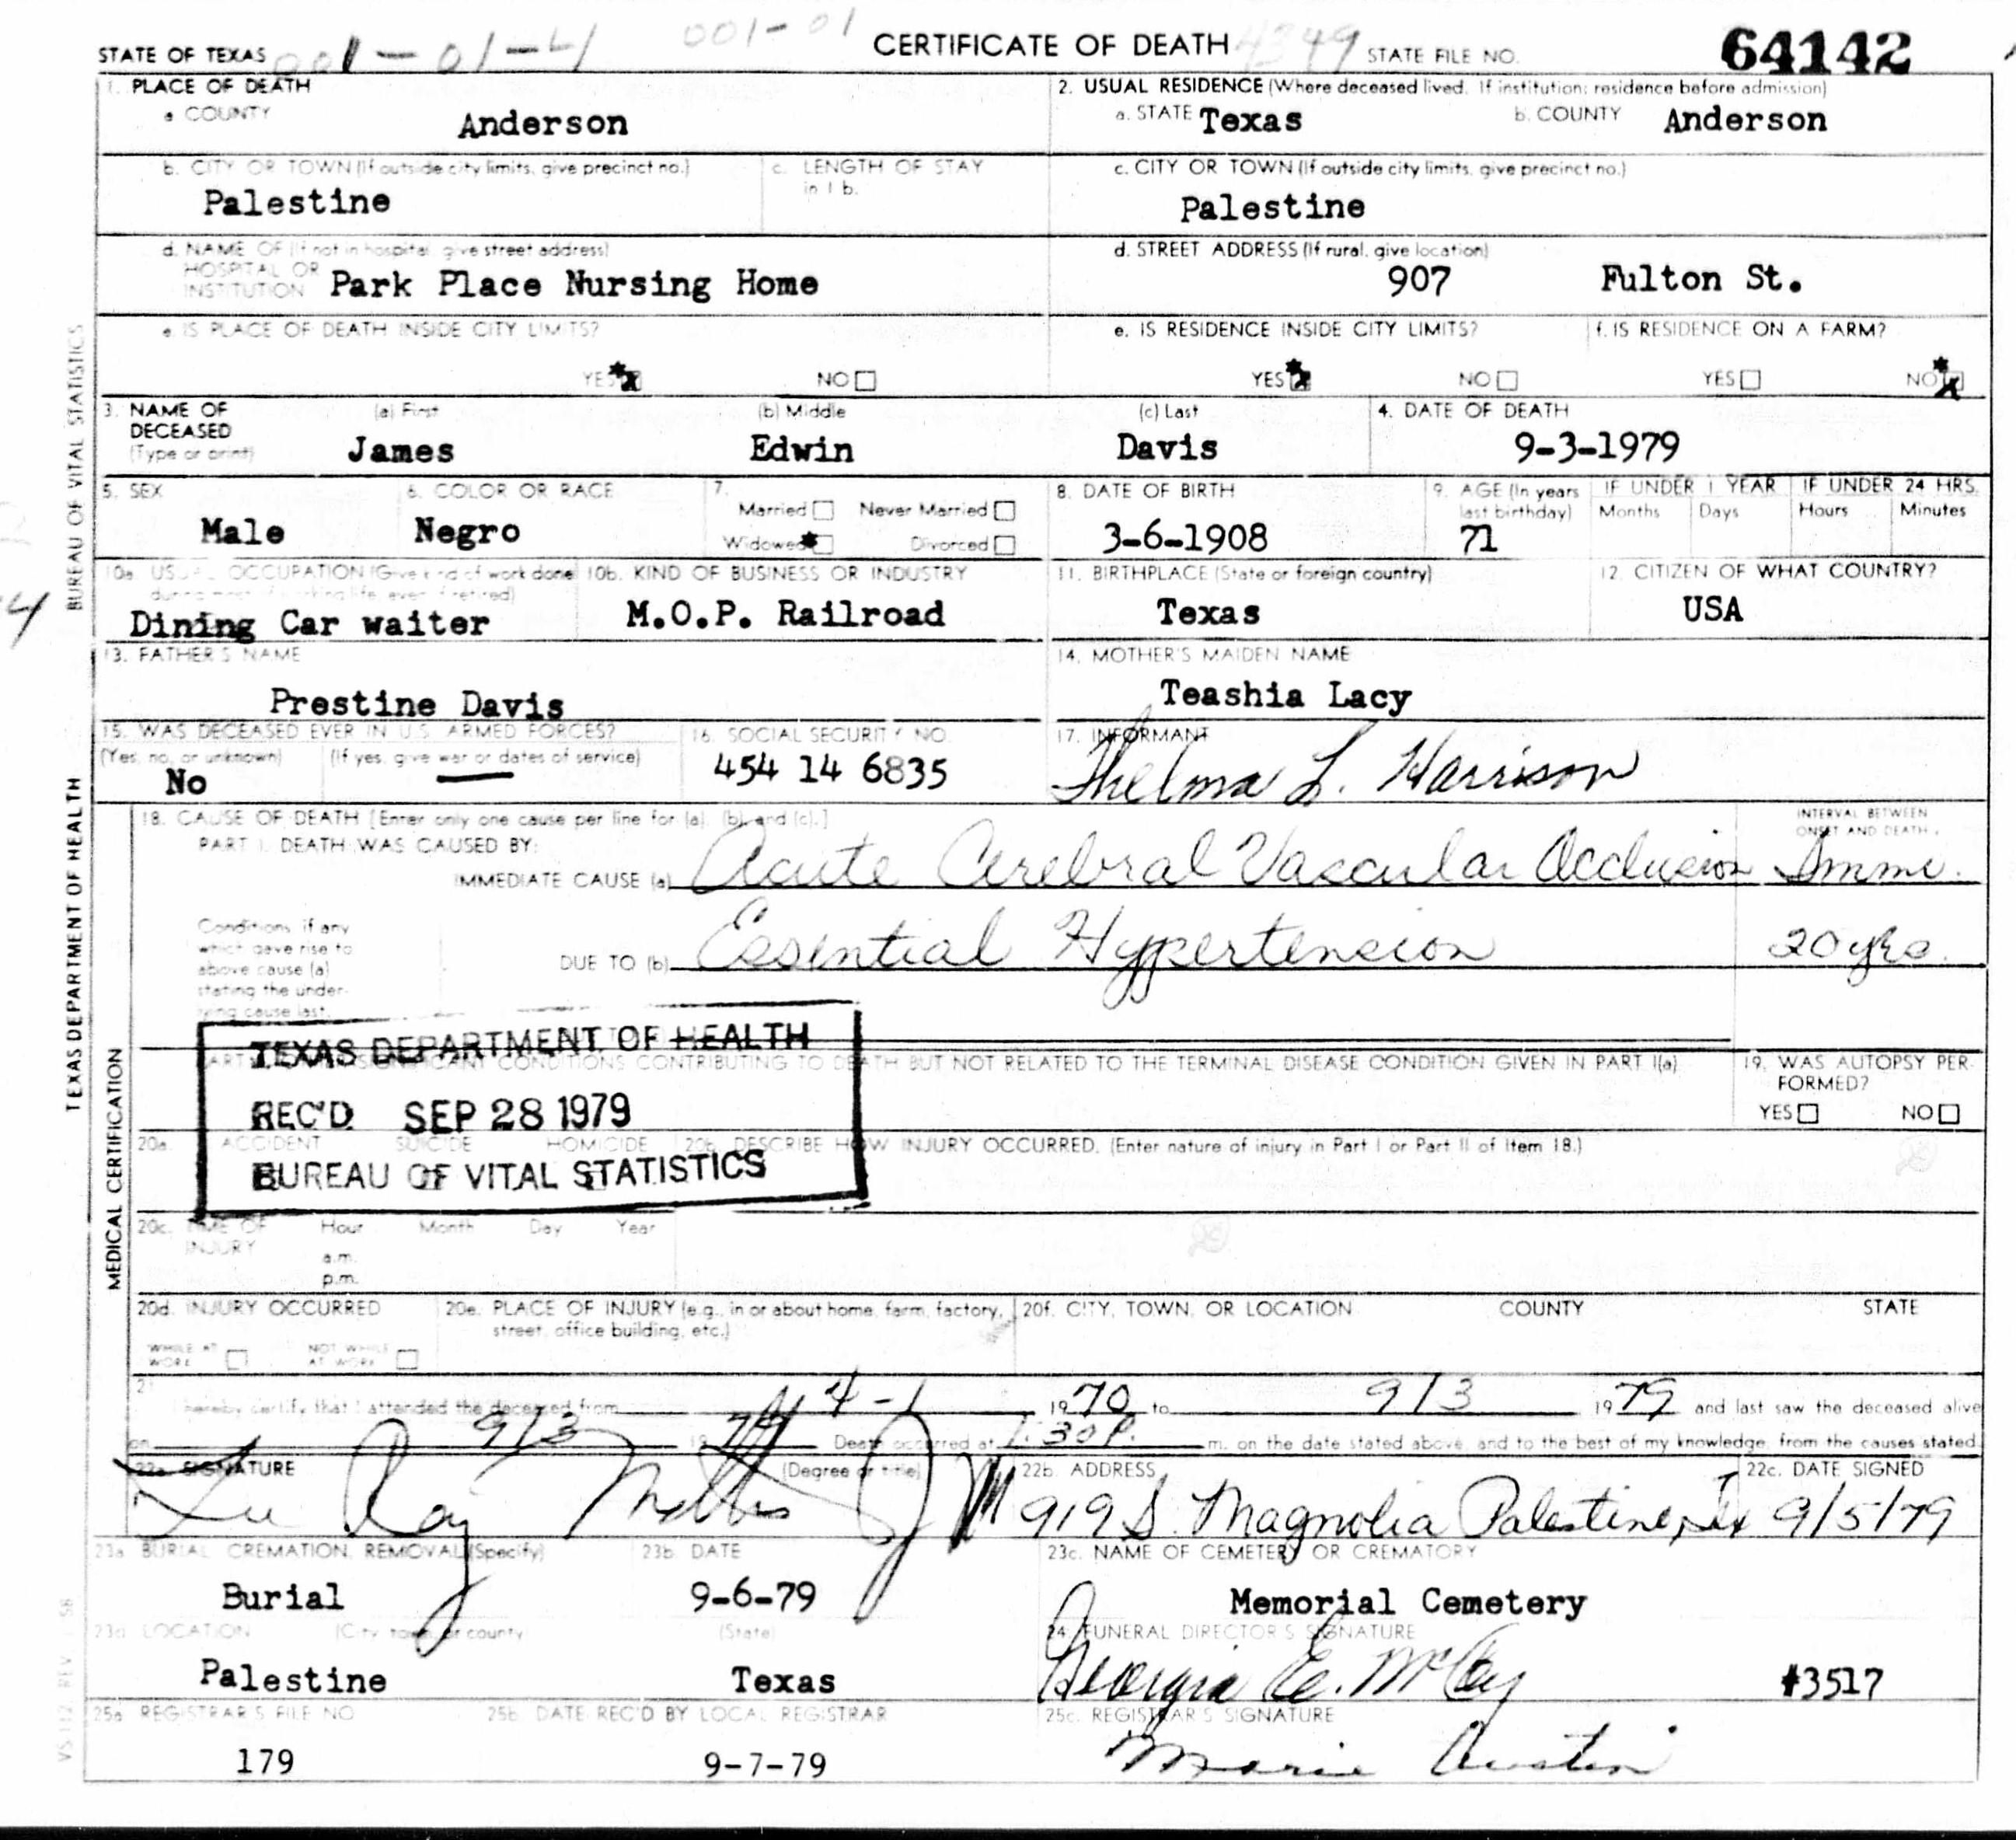 001-01-4 001-01 CERTIFICATE OF DEATH 4349 STATE FILE NO. 64142
STATE OF TEXAS
1. PLACE OF DEATH
a. COUNTY
Anderson
2. USUAL RESIDENCE (Where deceased lived. If institution: residence before admission)
a. STATE Texas b. COUNTY Anderson
b. CITY OR TOWN (If outside city limits, give precinct no.)
Palestine
c. LENGTH OF STAY
in 1 b.
c. CITY OR TOWN (If outside city limits, give precinct no.)
Palestine
d. NAME OF (If not in hospital, give street address)
HOSPITAL OR
INSTITUTION Park Place Nursing Home
d. STREET ADDRESS (If rural, give location)
907 Fulton St.
e. IS PLACE OF DEATH INSIDE CITY LIMITS?
YES NO
e. IS RESIDENCE INSIDE CITY LIMITS?
YES NO
f. IS RESIDENCE ON A FARM?
YES NO
3. NAME OF
DECEASED
(Type or print)
(a) First
James
(b) Middle
Edwin
(c) Last
Davis
4. DATE OF DEATH
9-3-1979
5. SEX
Male
6. COLOR OR RACE
Negro
7.
Married Never Married
Widowed Divorced
8. DATE OF BIRTH
3-6-1908
9. AGE (In years
last birthday)
71
IF UNDER 1 YEAR
Months Days
IF UNDER 24 HRS.
Hours Minutes
10a. USUAL OCCUPATION (Give kind of work done
during most of working life, even if retired)
Dining Car waiter
10b. KIND OF BUSINESS OR INDUSTRY
M.O.P. Railroad
11. BIRTHPLACE (State or foreign country)
Texas
12. CITIZEN OF WHAT COUNTRY?
USA
13. FATHER'S NAME
Prestine Davis
14. MOTHER'S MAIDEN NAME
Teashia Lacy
15. WAS DECEASED EVER IN U.S. ARMED FORCES?
(Yes, no, or unknown) (If yes, give war or dates of service)
No —
16. SOCIAL SECURITY NO.
454 14 6835
17. INFORMANT
Thelma L. Harrison
18. CAUSE OF DEATH [Enter only one cause per line for (a), (b), and (c).]
PART I. DEATH WAS CAUSED BY:
INTERVAL BETWEEN
ONSET AND DEATH
IMMEDIATE CAUSE (a) Acute Cerebral Vascular Occlusion Imme.
Conditions, if any
which gave rise to
above cause (a)
stating the under-
lying cause last.
DUE TO (b) Essential Hypertension 20 yrs.
TEXAS DEPARTMENT OF HEALTH
REC'D SEP 28 1979
BUREAU OF VITAL STATISTICS
SIGNIFICANT CONDITIONS CONTRIBUTING TO DEATH BUT NOT RELATED TO THE TERMINAL DISEASE CONDITION GIVEN IN PART I(a)
19. WAS AUTOPSY PER-
FORMED?
YES NO
20a. ACCIDENT SUICIDE HOMICIDE
20b. DESCRIBE HOW INJURY OCCURRED. (Enter nature of injury in Part I or Part II of Item 18.)
20c. TIME OF
INJURY
Hour Month Day Year
a.m.
p.m.
20d. INJURY OCCURRED
WHILE AT
WORK
NOT WHILE
AT WORK
20e. PLACE OF INJURY (e.g., in or about home, farm, factory,
street, office building, etc.)
20f. CITY, TOWN, OR LOCATION COUNTY STATE
21. I hereby certify that I attended the deceased from 4-1 1970 to 9/3 1979 and last saw the deceased alive
on 9/3 1979 Death occurred at 1:30 P. m. on the date stated above, and to the best of my knowledge, from the causes stated.
22a. SIGNATURE (Degree or title)
22b. ADDRESS
919 S. Magnolia Palestine, Tx
22c. DATE SIGNED
9/5/79
23a. BURIAL, CREMATION, REMOVAL (Specify)
Burial
23b. DATE
9-6-79
23c. NAME OF CEMETERY OR CREMATORY
Memorial Cemetery
23d. LOCATION (City, town, or county (State)
Palestine Texas
24. FUNERAL DIRECTOR'S SIGNATURE
Georgia E. McCoy #3517
25a. REGISTRAR'S FILE NO.
179
25b. DATE REC'D BY LOCAL REGISTRAR
9-7-79
25c. REGISTRAR'S SIGNATURE
Marie Austin
TEXAS DEPARTMENT OF HEALTH BUREAU OF VITAL STATISTICS
MEDICAL CERTIFICATION
VS-112 REV. 58